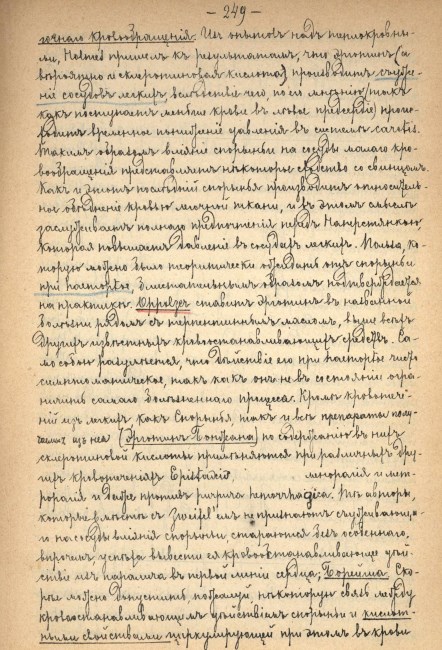 - 249 -
точнаго кровообращенія. Изъ опытовъ надъ теплокровны-
ми, Holmes пришелъ къ результатамъ, что эрготинъ (а
вѣроятно и склеротиновая кислота) производитъ съуже-
ніе сосудовъ легкихъ, вслѣдствіе чего, по его мнѣнію, такъ
какъ поступаетъ меньше крови въ лѣвое предсердіе, проис-
ходитъ временное пониженіе давленія въ системѣ carotis.
Такимъ образомъ вліяніе спорыньи на сосуды малаго кро-
вообращенія представляетъ нѣкоторое сродство со свинцомъ.
Какъ и этотъ послѣдній спорынья производитъ относитель-
ное обѣднѣніе кровью легочной ткани, и въ этомъ смыслѣ
заслуживаетъ полнаго предпочтенія передъ Наперстянкою
которая повышаетъ давленіе въ сосудахъ легкихъ. Польза, ко-
торую можно было теоритически ожидать отъ спорыньи
при haemoptoe, замѣчательнымъ образомъ подтверждается
на практикѣ. ставитъ эрготинъ въ названной
болѣзни рядомъ съ терпентиннымъ масломъ, выше всѣхъ
другихъ извѣстныхъ кровоостанавливающихъ средствъ. Са-
мо собою разумѣется, что дѣйствіе его при haemoptoe чисто
симптоматическое, такъ какъ онъ не въ состояніи огра-
ничить самаго болѣзненнаго процесса. Кромѣ кровотече-
ній изъ легкихъ какъ Спорынья такъ и всѣ препараты полу-
чаемые изъ нея (Эрготинъ Бонжана) по содержанію въ нихъ
склеротиновой кислоты примѣняются при различныхъ дру-
гихъ кровотеченіяхъ Epistaxis меноррагія и мет-
роррагія и даже противъ purpura hemorrhagica. Тѣ авторы,
которые вмѣстѣ съ Zweifel'емъ не признаютъ съуживающа-
го на сосуды вліянія спорыньи, стараются безъ особеннаго,
впрочемъ, успѣха вывести ея кровоостанавливающее дѣй-
ствіе изъ паралича въ первой линіи сердца; Ско-
рѣе можно допустить, пожалуй, нѣкоторую связь между
кровоостанавливающимъ дѣйствіемъ спорыньи и кислот-
ными свойствами циркулирующей при этомъ въ крови